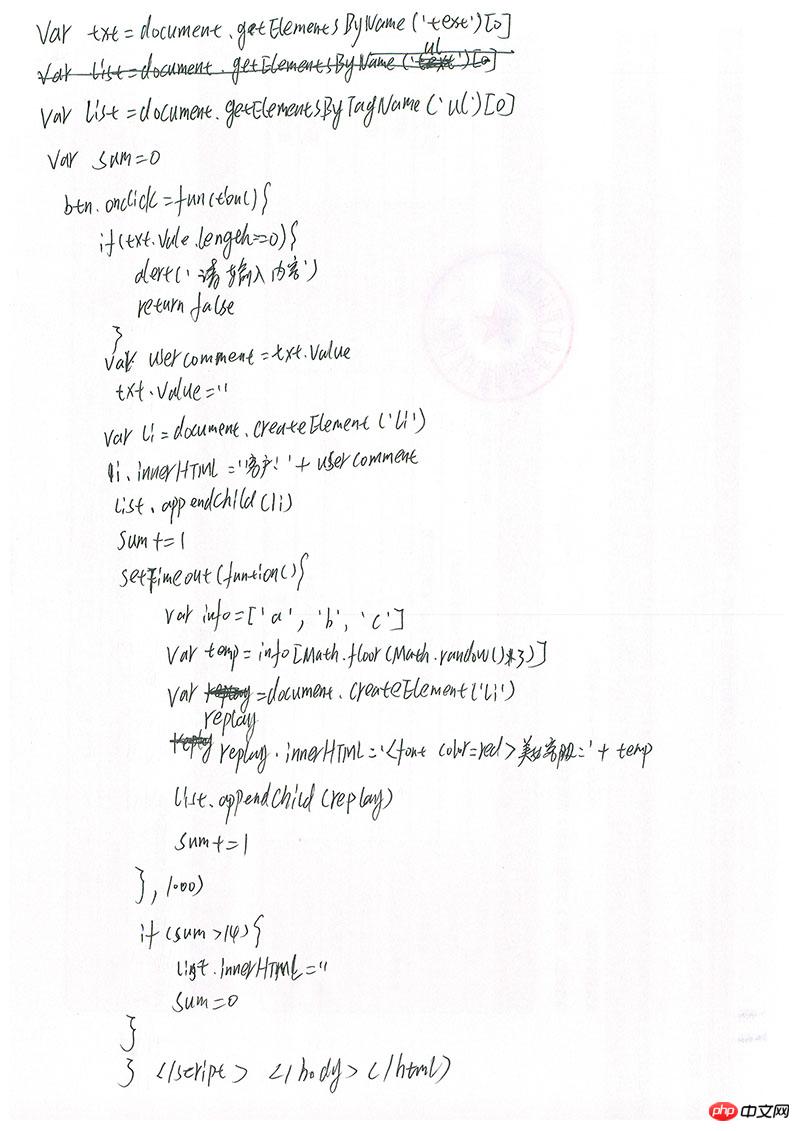 var txt=document.getElementsByName('text')[0]
var list=document.getElementsByName('ul')[0]
var list=document.getElementsByTagName('ul')[0]
var sum=0
btn.onclick=function(){
if(txt.vale.length==0){
alert('请输入内容')
return false
}
var usercomment=txt.value
txt.value=''
var li=document.createElement('li')
li.innerHTML='客户:'+usercomment
list.appendchild(li)
sum+=1
setTimeout(function(){
var info=['a','b','c']
var temp=info[Math.floor(Math.random()*3)]
var replay=document.createElement('li')
replay.innerHTML='<font color=red>客服='+temp
list.appendchild(replay)
sum+=1
},1000)
if(sum>14){
list.innerHTML=''
sum=0
}
} </script> </body> </html>
php 中文网